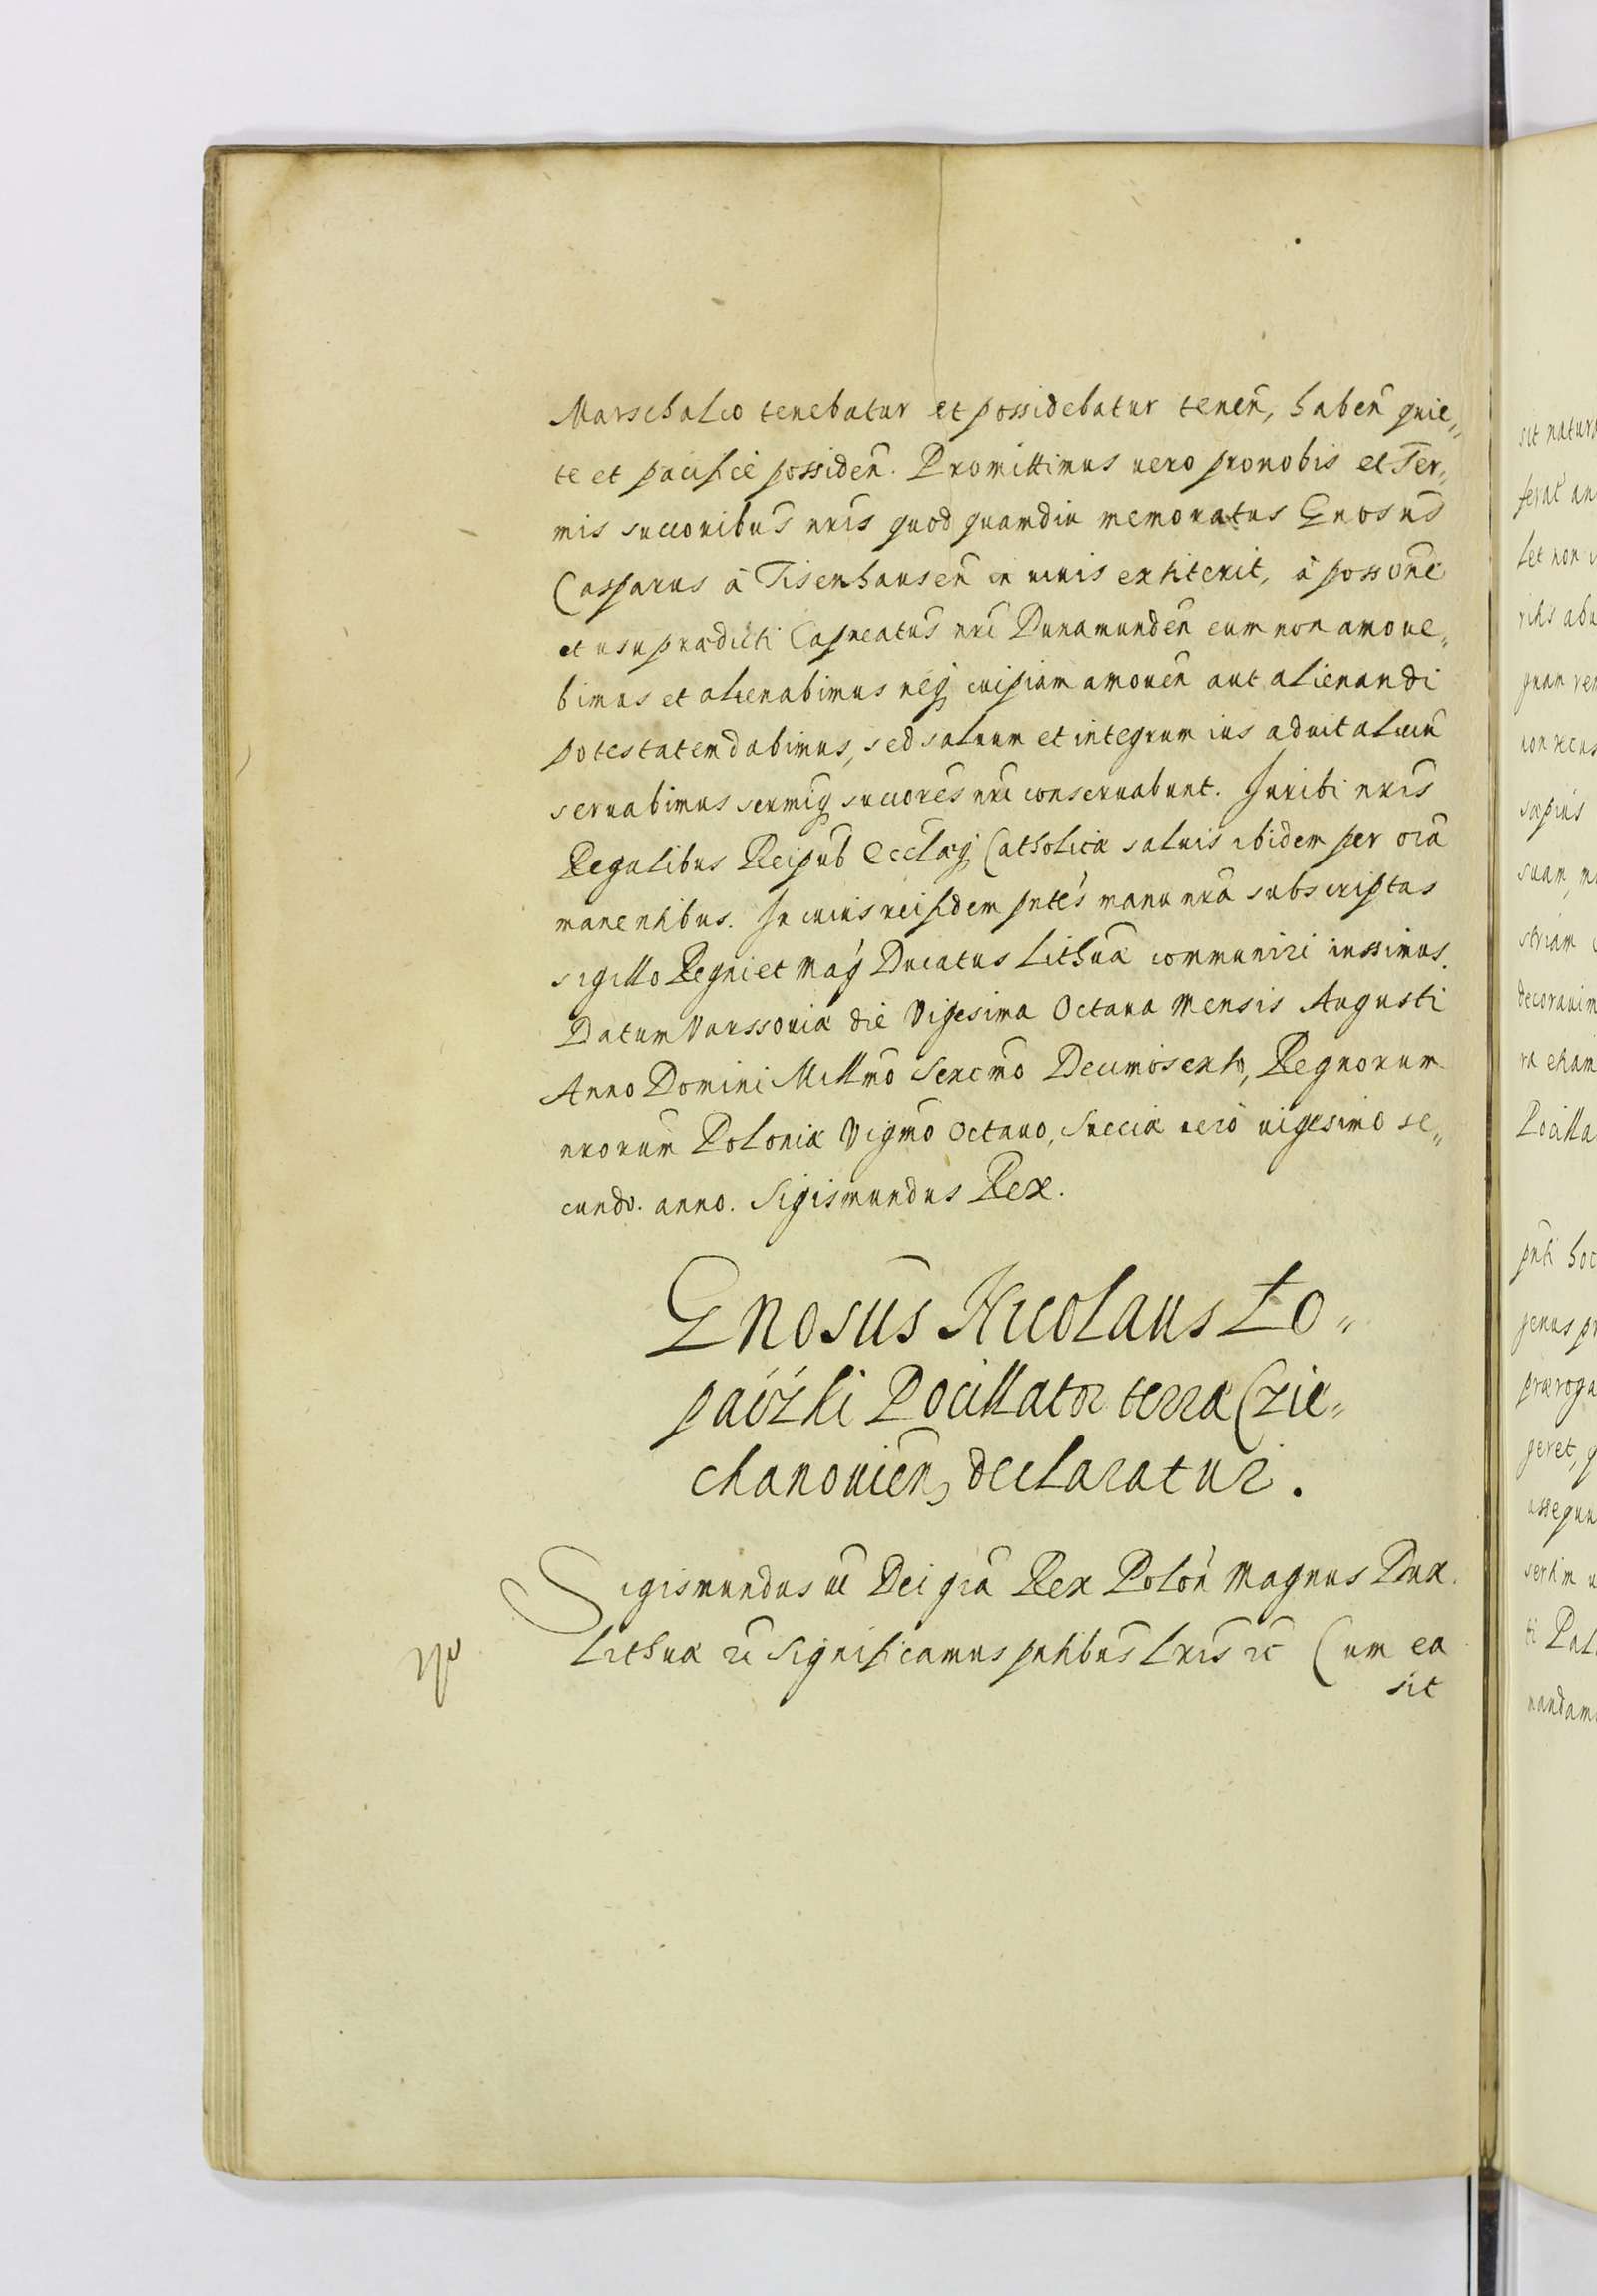 Marschalco tenebatur et possidebatur tenen̄, haben̄ quie„
te et pacifice possiden̄. Promittimus uero pro nobis et Ser„
mis succoribus nris quod quamdiu memoratus Gnosus
Casparus à Tisenhausen in uiuis extiterit, à possone
et usu prædicti Capneatus nri Dunamunden eum non amoue„
bimus et alienabimus neq cuipiam amouen aut alienandi
potestatem dabimus, sed saluum et integrum ius aduitalium
seruabimus sermiq succores nri conseruabunt. Juribi nris
Regalibus Reipub Ecclæq Catholicæ saluis ibidem per oia
manentibus. In cuius rei fidem pntes manu nra subscriptas
sigillo Regni et Mag Ducatus Lithuæ communiri iussimus.
Datum Varssouiæ die Vigesima Octaua Mensis Augusti
Anno Domini Millmo Sexcmo Decimosexto, Regnorum
nrorum Poloniæ Vigmo Octauo, Sueciæ uero uigesimo se„
cundo. anno. Sigismundus Rex.
Gnosus Nicolaus Ło„
Pocillator terræ Czie„
chanouien declaratur.
Sigismundus iii Dei gra Rex Polon Magnus Dux
Lithuæ zc Significamus pntibus Lris zc Cum ea
sit
sit natura
ferat
Let non
Pocilla
genus
præroga
geret,